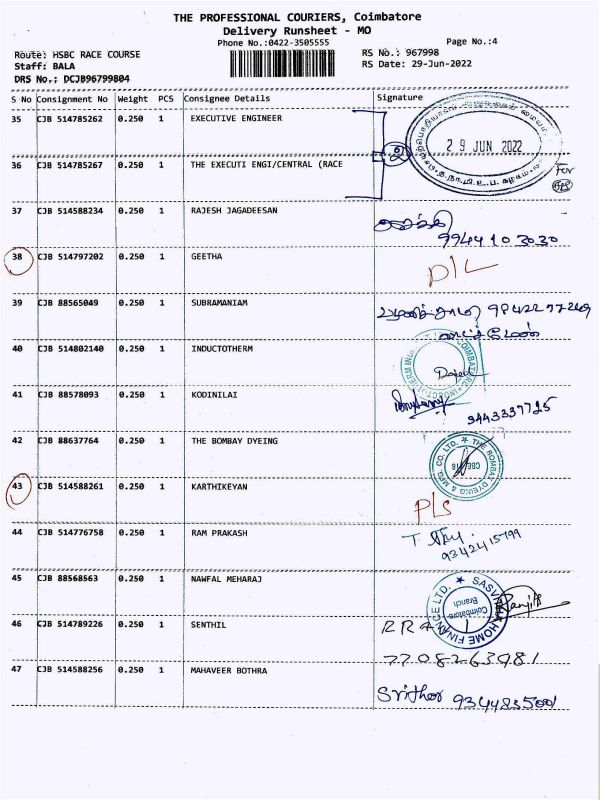 THE PROFESSIONAL COURIERS, Coimbatore
Delivery Runsheet - MO
Phone No.:0422-3505555
Page No.:4
Route: HSBC RACE COURSE
RS No.: 967998
Staff: BALA
RS Date: 29-Jun-2022
DRS No.; DCJB96799804
S No Consignment No Weight PCS Consignee Details Signature
35 CJB 514785262 0.250 1 EXECUTIVE ENGINEER
29 JUN 2022
36 CJB 514785267 0.250 1 THE EXECUTI ENGI/CENTRAL (RACE
For
37 CJB 514588234 0.250 1 RAJESH JAGADEESAN
99441 03030
38 CJB 514797202 0.250 1 GEETHA
D/L
39 CJB 88565049 0.250 1 SUBRAMANIAM
40 CJB 514802140 0.250 1 INDUCTOTHERM
41 CJB 88578093 0.250 1 KODINILAI
9443337725
42 CJB 88637764 0.250 1 THE BOMBAY DYEING
THE BOMBAY DYEING & MFG. CO. LTD.
43 CJB 514588261 0.250 1 KARTHIKEYAN
P/S
44 CJB 514776758 0.250 1 RAM PRAKASH
9342415799
45 CJB 88568563 0.250 1 NAWFAL MEHARAJ
HOME FINANCE LTD.
Coimbatore
Branch
46 CJB 514789226 0.250 1 SENTHIL
7708263981
47 CJB 514588256 0.250 1 MAHAVEER BOTHRA
Srithar 9344835001